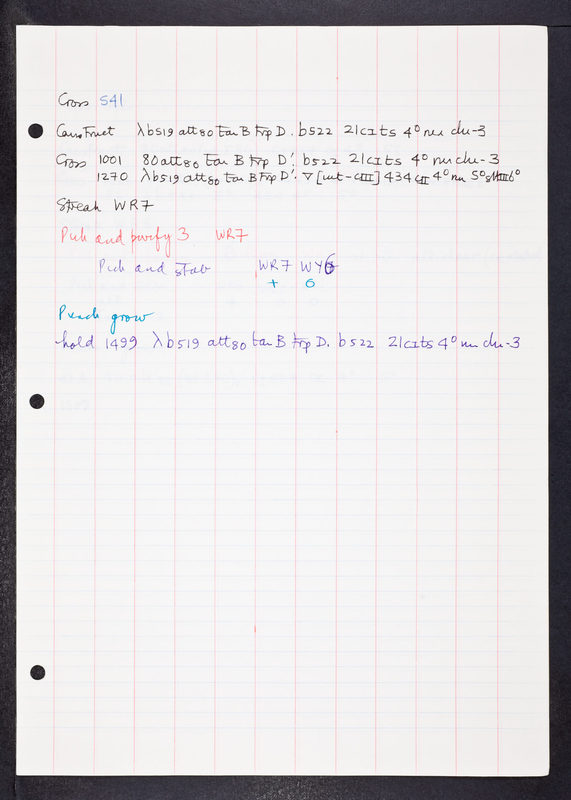 Cross 541
Construct λb519 att80 ton B trp D. b522 21cIts 4° nu du-3
Cross 1001 80att80 ton B trp D'. b522 21cIts 4° nu du-3
1270 λb519 att80 ton B trp D'. ∇[int-cIII] 434 cII 4° nu 5°
Streak WR7
Pick and purify 3 WR7
Pick and stab WR7 WY6
+ O
Punch grow
hold 1499 λb519 att80 ton B trp D. b522 21cIts 4° nu du-3